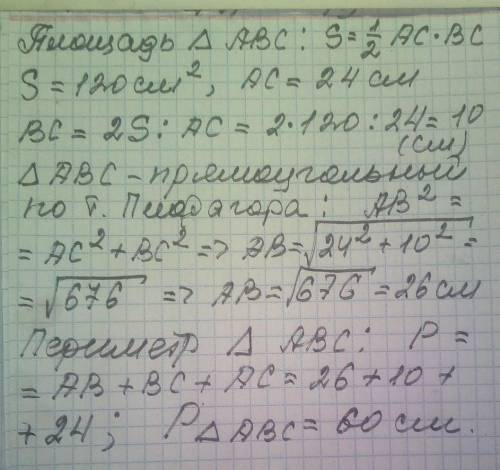 Площадь △ ABC: S = 1/2 AC · BC
S = 120 см², AC = 24 см
BC = 2S : AC = 2 · 120 : 24 = 10
(см)
△ ABC – прямоугольный
по т. Пифагора: AB² =
= AC² + BC² => AB = √(24² + 10²) =
= √676 => AB = √676 = 26 см
Периметр △ ABC: P =
= AB + BC + AC = 26 + 10 +
+ 24; P△ABC = 60 см.